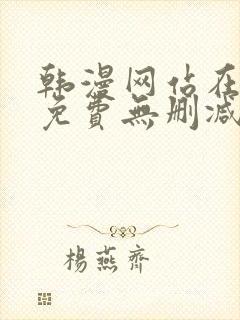 韩漫网站在
免費無删减
楊燕齊